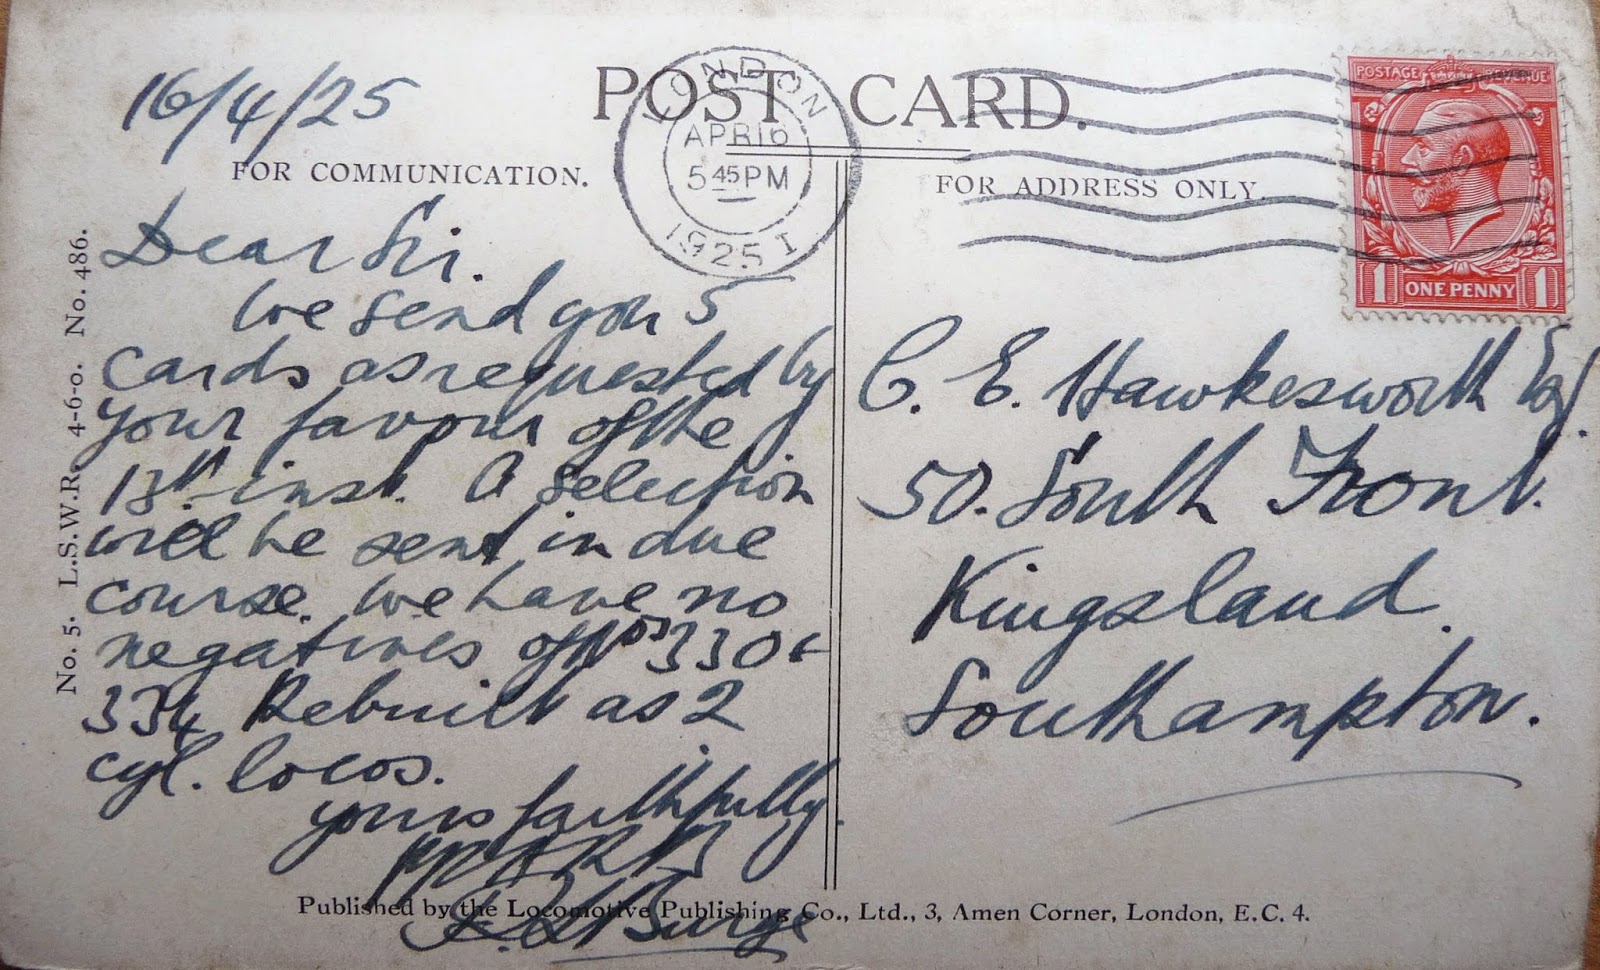 16/4/25
POST CARD.
FOR COMMUNICATION.
FOR ADDRESS ONLY.
LONDON
APR 16
5 45 PM
1925 I
POSTAGE REVENUE
1 ONE PENNY 1
No. 5. L.S.W.R. 4-6-0. No. 486.
Dear Sir.
We send you 5
cards as requested by
your favour of the
13th inst. A selection
will be sent in due
course. We have no
negatives of Nos 330 &
334 Rebuilt as 2
cyl. locos.
yours faithfully.
C. E. Hawkesworth Esq.
50. South Front.
Kingsland.
Southampton.
Published by the Locomotive Publishing Co., Ltd., 3, Amen Corner, London, E.C. 4.